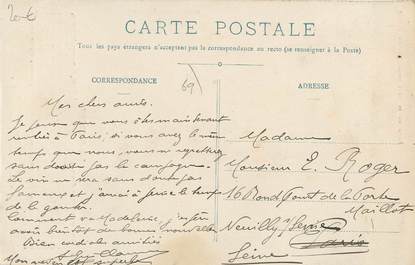 20 €
CARTE POSTALE
Tous les pays étrangers n'acceptent pas la correspondance au recto (se renseigner à la Poste)
CORRESPONDANCE
69
ADRESSE
Mes chers amis.
Je pense que vous êtes maintenant
rentrés à Paris, si vous avez le même
temps que nous, vous ne regrettez
sans doute pas la campagne.
Le vin ne sera sans doute pas
fameux et j'aurai à peine le temps
de la
Comment va Madeleine, j'espère
avoir bientôt de bonnes nouvelles
Bien cordiales amitiés
Mon
Madame
Monsieur E. Roger
16 Rond Point de la Porte
Maillot
Neuilly s/ Seine
Paris
Seine